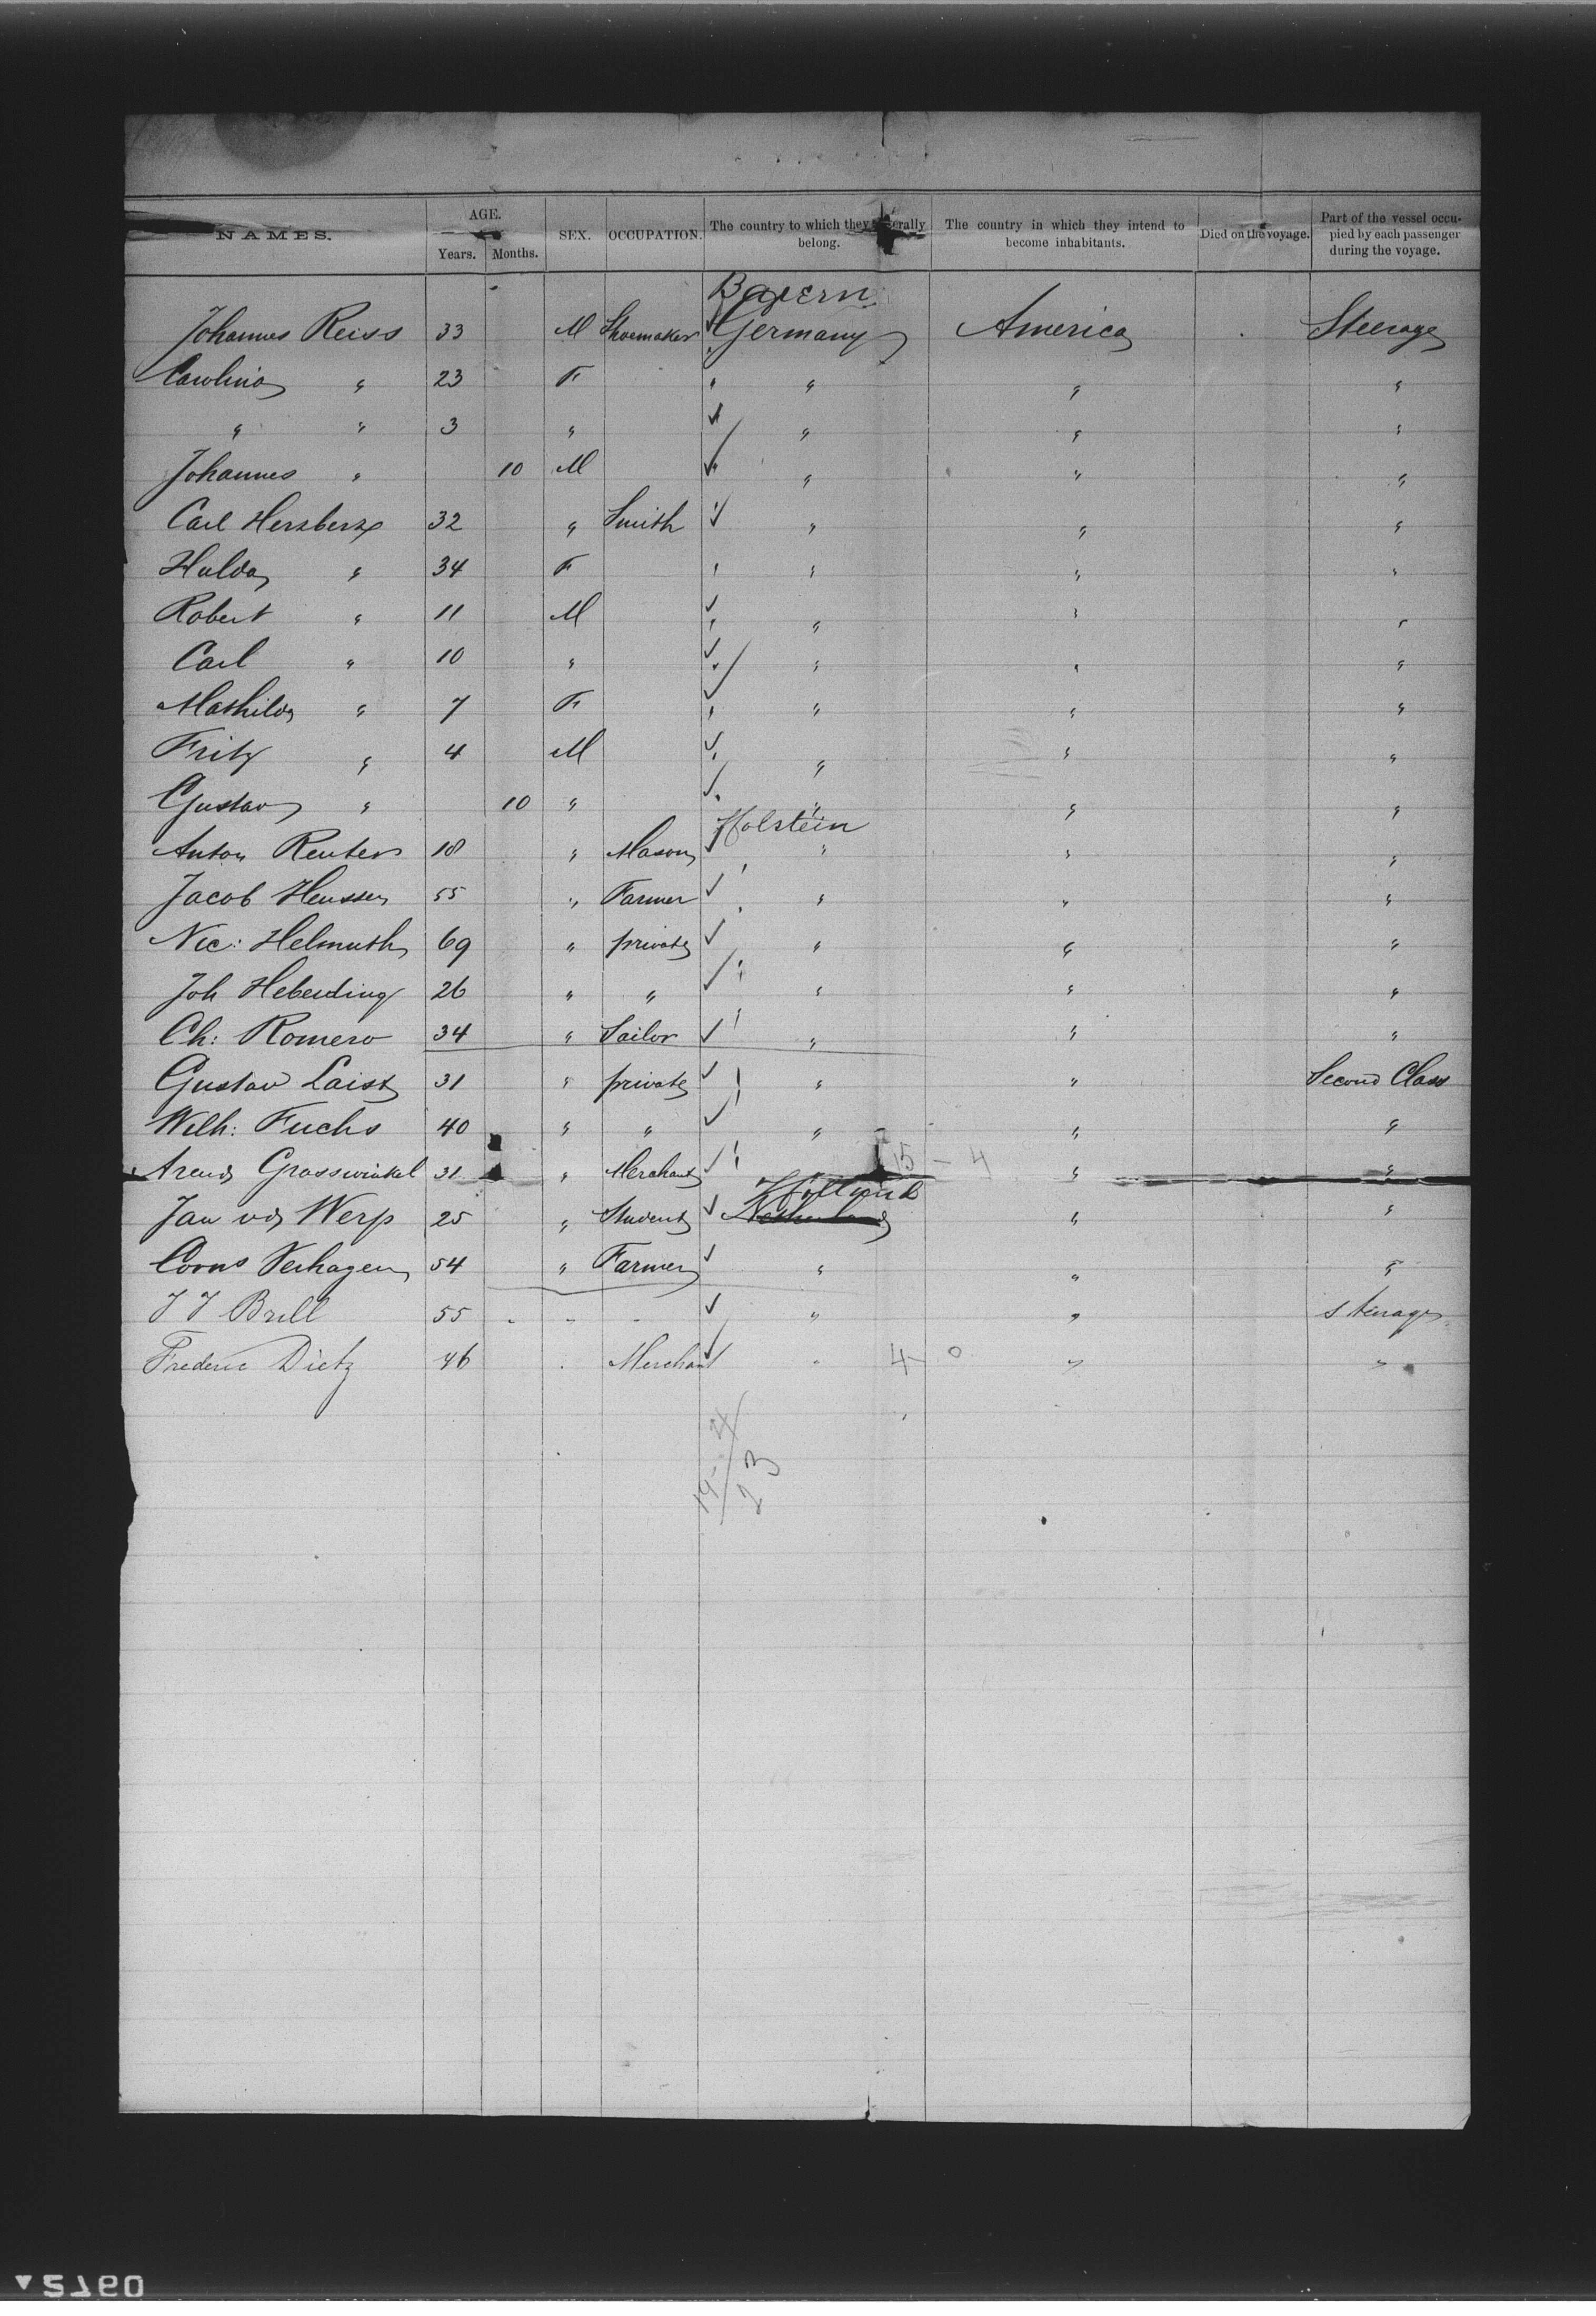 NAMES. AGE. Years. Months. SEX. OCCUPATION. The country to which they belong. The country in which they intend to become inhabitants. Died on the voyage. Part of the vessel occupied by each passenger during the voyage.
Bayern
Johannes Reiss 33 M Shoemaker Germany America Steerage
Carolina " 23 F " " " "
" " 3 " " " "
Johannes " 10 M " " "
Carl Herzberg 32 " Smith " " "
Hulda " 34 F " " " "
Robert " 11 M " " " "
Carl " 10 " " " " "
Mathilda " 7 F " " " "
Fritz " 4 M " " " "
Gustav " 10 " " " "
Holstein
Anton Reuter 18 " Mason " " "
Jacob Heussen 55 " Farmer " " "
Nic: Helmuth 69 " private " " "
Joh Heberding 26 " " " " "
Ch: Romero 34 " Sailor " " "
Gustav Laist 31 " private " " Second Class
Wilh: Fuchs 40 " " " " "
15 - 4
Arend Grasswinkel 31 " Merchant " "
Holland
Jan vd Werp 25 " Student Netherland " "
Corns Verhagen 54 " Farmer " " "
J J Brill 55 - - - " " steerage
Frederic Dietz 46 . Merchant " 4 - 0 " "
19 - 4
23
05760